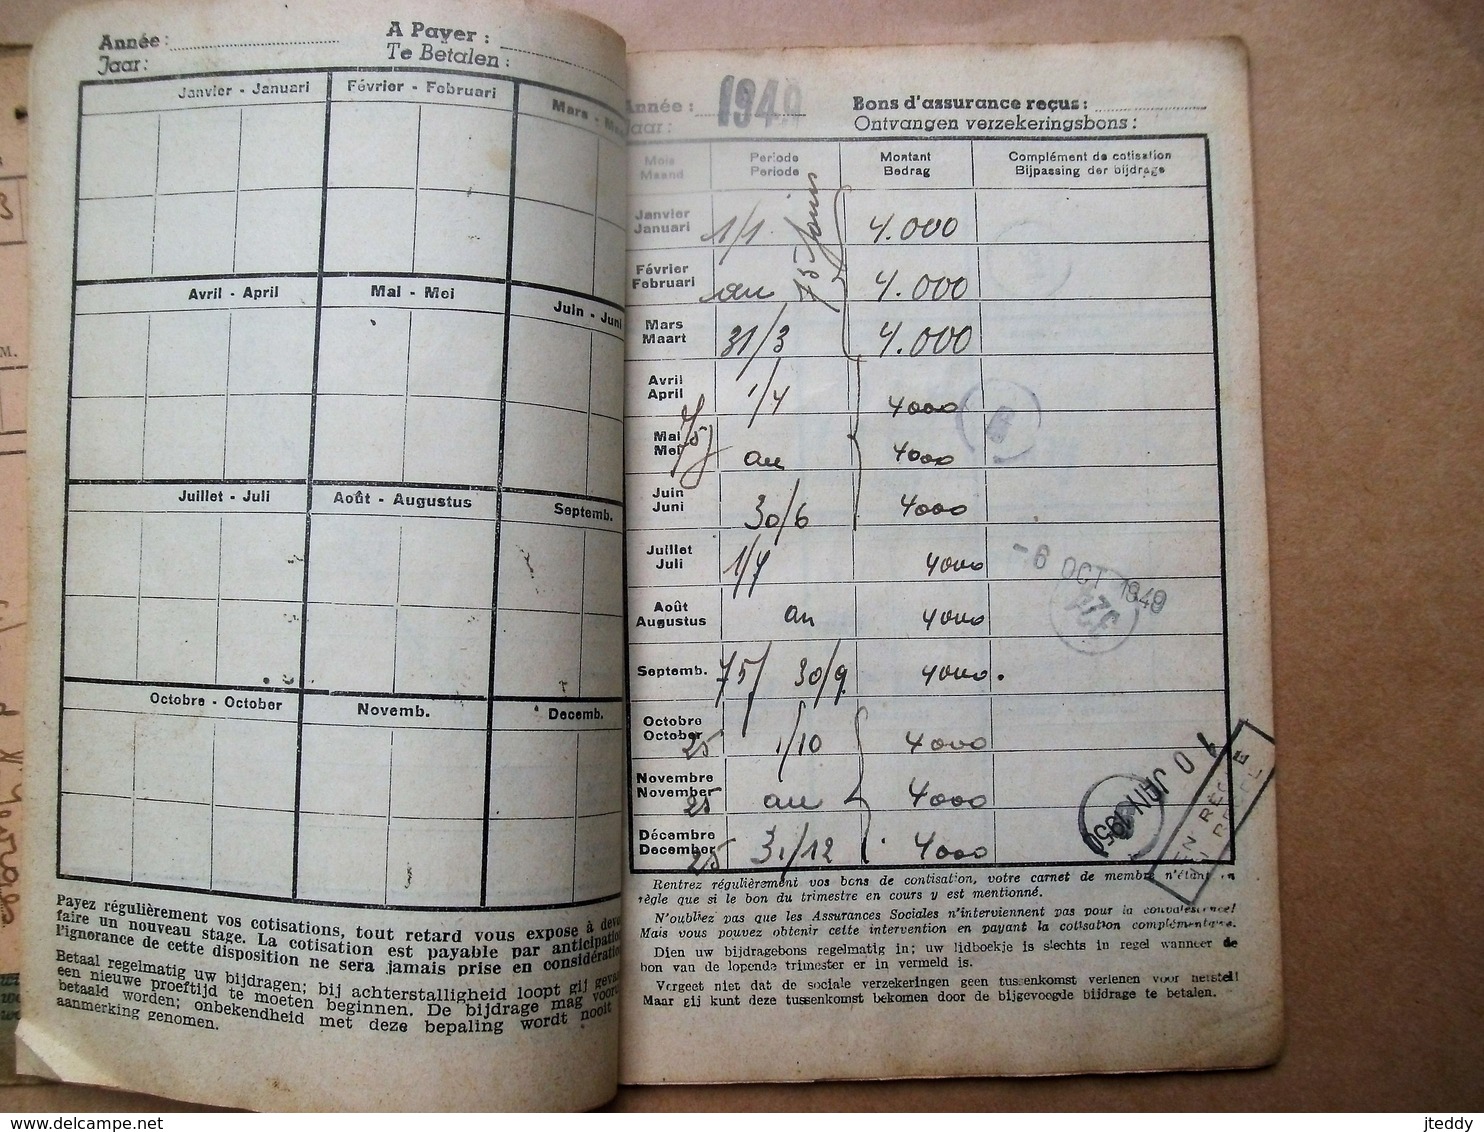 Année :
Jaar :
A Payer :
Te Betalen :
Janvier - Januari
Février - Februari
Mars - M
Avril - April
Mai - Mei
Juin - Juni
Juillet - Juli
Août - Augustus
Septemb.
Octobre - October
Novemb.
Decemb.
Payez régulièrement vos cotisations, tout retard vous expose à
faire un nouveau stage. La cotisation est payable par anticipation
l'ignorance de cette disposition ne sera jamais prise en considération
Betaal regelmatig uw bijdragen; bij achterstalligheid loopt gij
een nieuwe proeftijd te moeten beginnen. De bijdrage mag
betaald worden; onbekendheid met deze bepaling wordt nooit
aanmerking genomen.
Année : 1949
Jaar :
Bons d'assurance reçus :
Ontvangen verzekeringsbons :
Mois Periode Montant Complément de cotisation
Maand Periode Bedrag Bijpassing der bijdrage
75 Jours
Janvier
Januari 1/1 4.000
Février
Februari au 4.000
Mars
Maart 31/3 4.000
Avril
April 1/4 4000
Mai
Mei au 4000
Juin
Juni 30/6 4000
Juillet
Juli 1/7 4000
Août
Augustus an 4000
Septemb. 75/ 30/9 4000.
- 6 OCT 1949
Octobre
October 25 1/10 4000
Novembre
November 25 au 4000
Décembre
December 25 31/12 4000
10 JAN 1950
EN REGLE
Rentrez régulièrement vos bons de contisation, votre carnet de membre n'étant en
règle que si le bon du trimestre en cours y est mentionné.
N'oubliez pas que les Assurances Sociales n'interviennent pas pour la convalescence!
Mais vous pouvez obtenir cette intervention en payant la cotisation complémentaire.
Dien uw bijdragebons regelmatig in; uw lidboekje is slechts in regel wanneer de
bon van de lopende trimester er in vermeld is.
Vergeet niet dat de sociale verzekeringen geen tussenkomst verlenen voor herstel!
Maar gij kunt deze tussenkomst bekomen door de bijgevoegde bijdrage te betalen.
jteddy